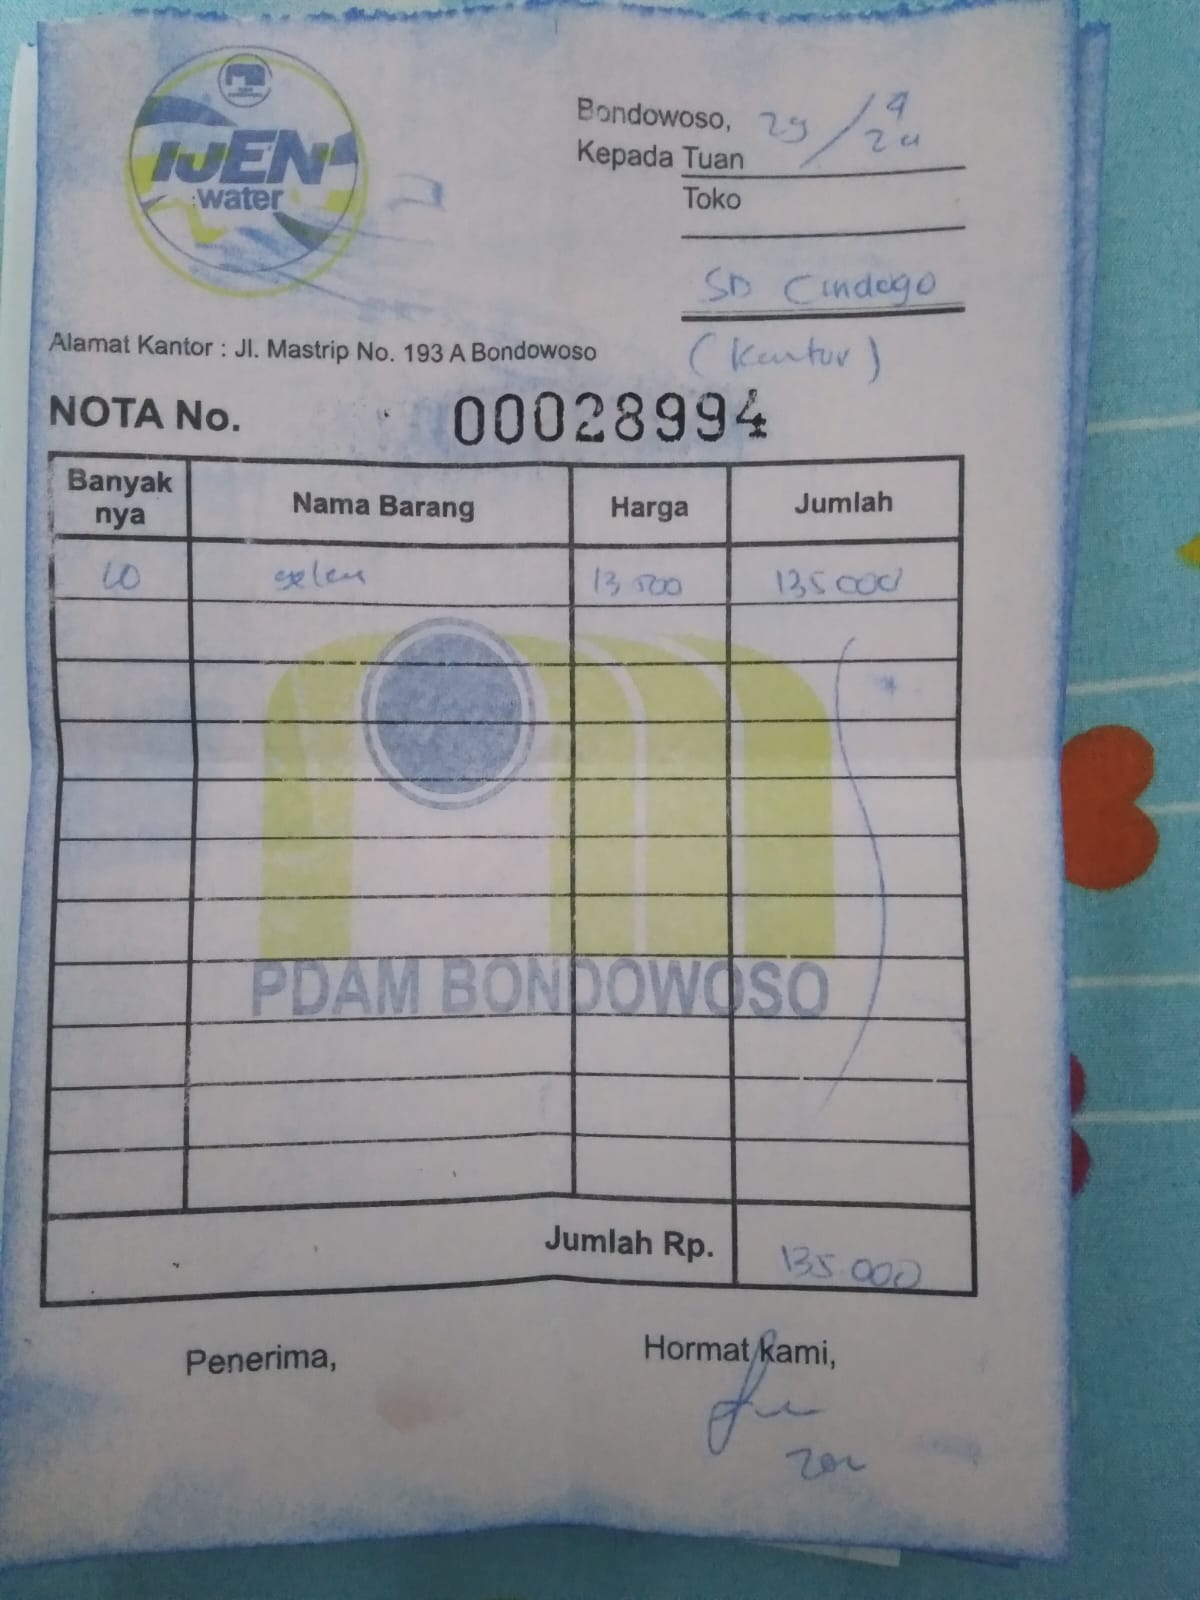 IJEN
water
Bondowoso, 29/4
24
Kepada Tuan
Toko
SD Cindogo
(Kantor)
Alamat Kantor : Jl. Mastrip No. 193 A Bondowoso
NOTA No. 00028994
Banyak nya Nama Barang Harga Jumlah
10 gelas 13.500 135.000
PDAM BONDOWOSO
Jumlah Rp. 135.000
Penerima, Hormat kami,